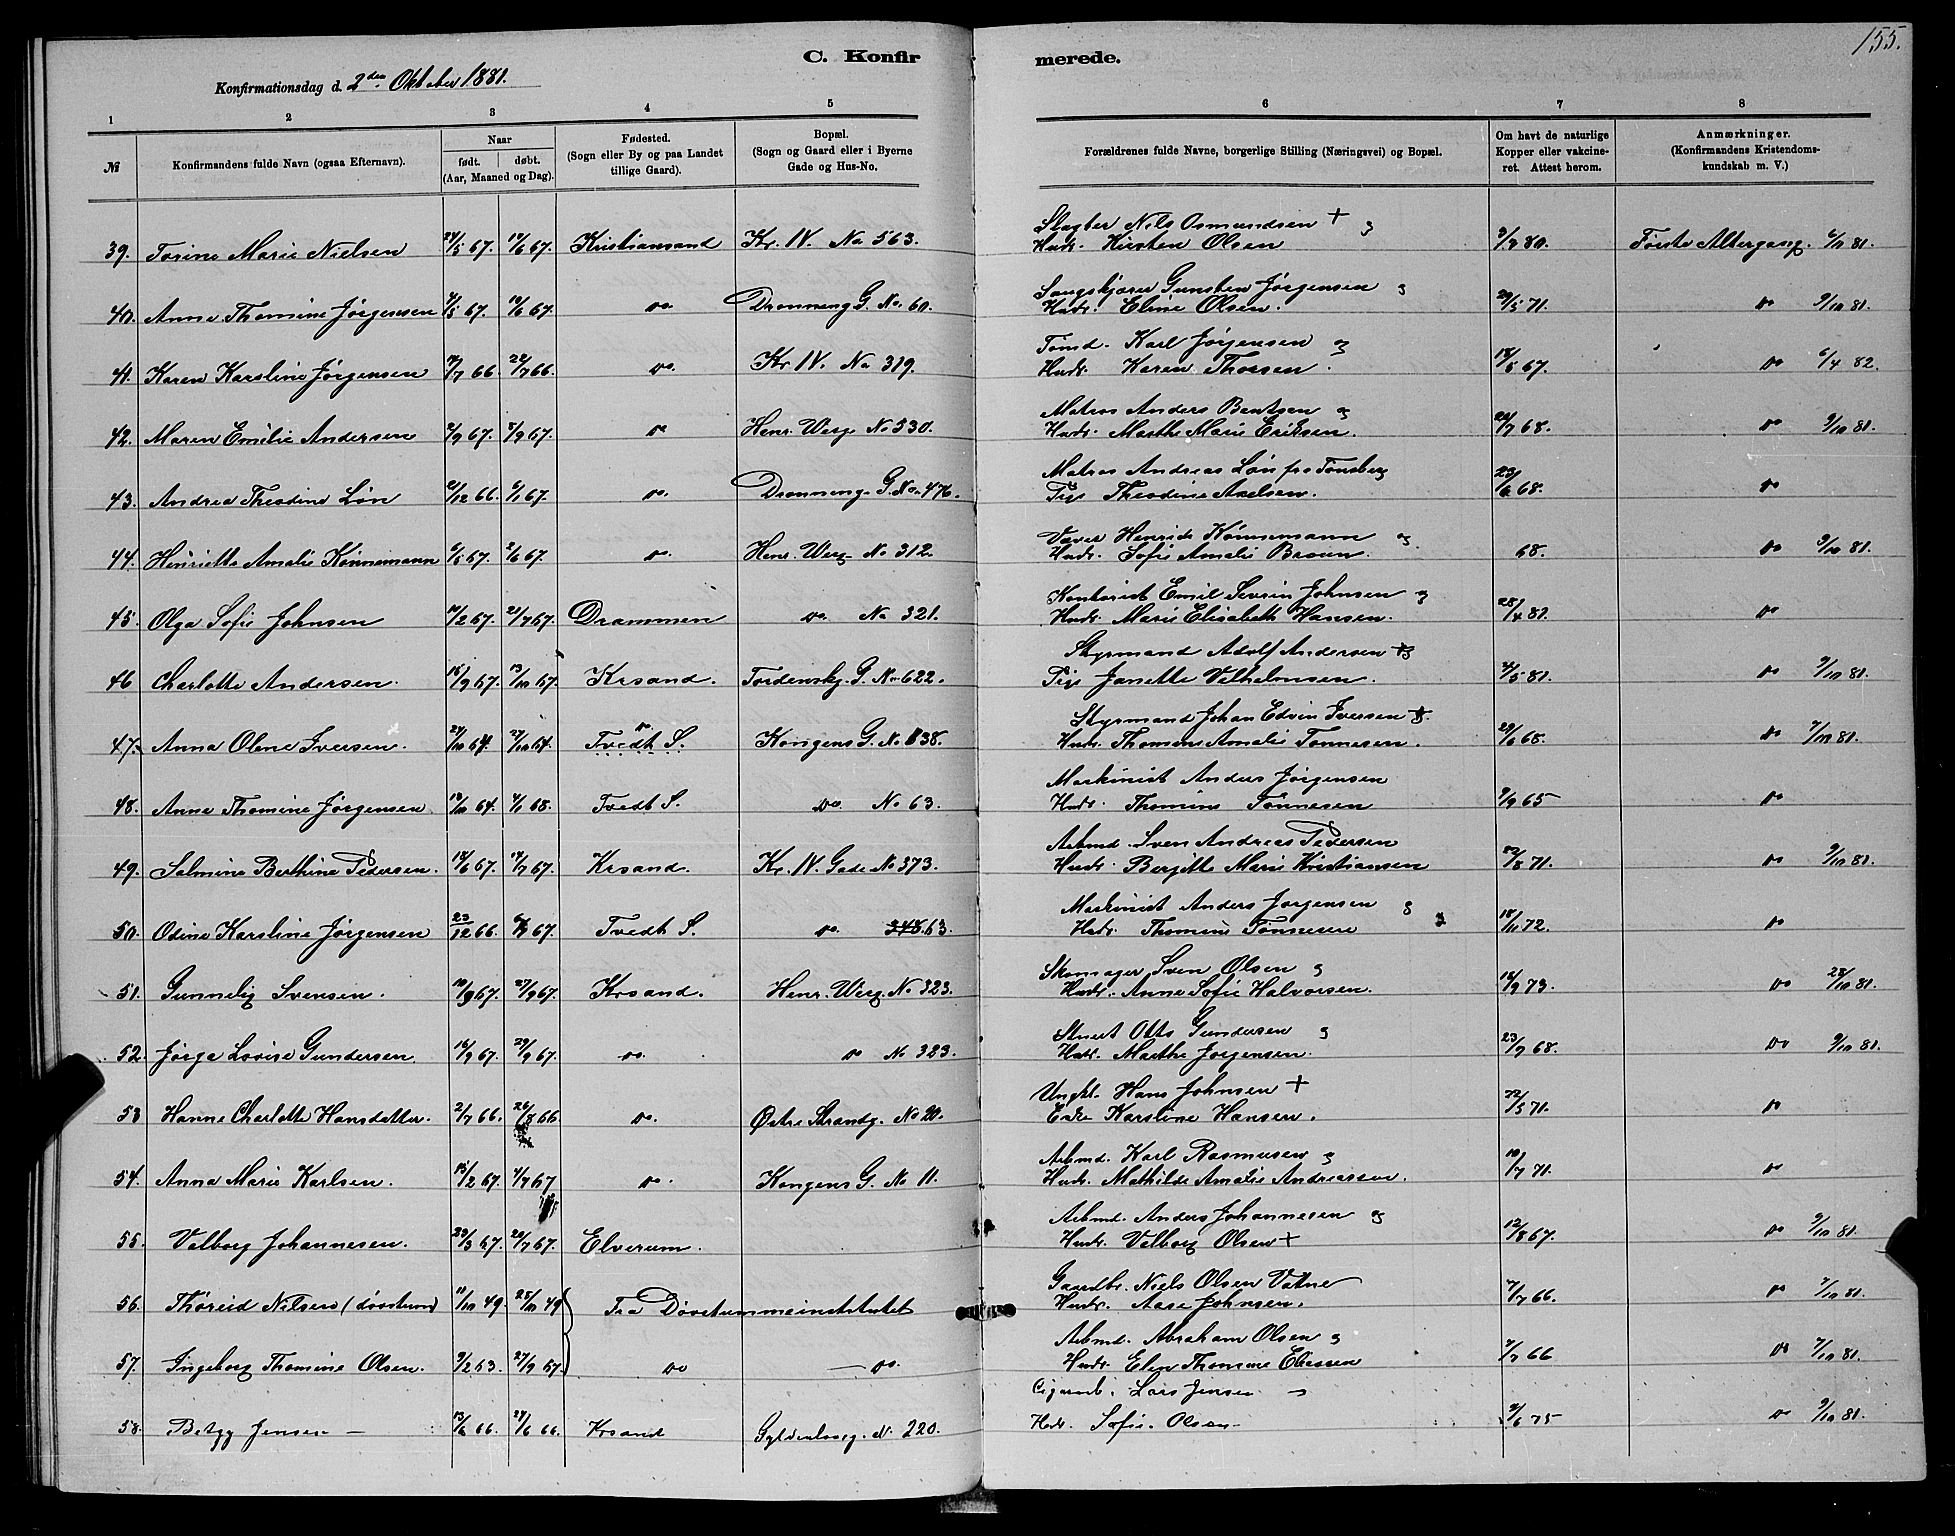 155.
C. Konfirmerede.
Konfirmationsdag d. 2den Oktober 1881.
1 2 3 4 5 6 7 8
№ Konfirmandens fulde Navn (ogsaa Efternavn). Naar født. døbt. (Aar, Maaned og Dag). Fødested. (Sogn eller By og paa Landet tillige Gaard). Bopæl. (Sogn og Gaard eller i Byerne Gade og Hus-No. Forældrenes fulde Navne, borgerlige Stilling (Næringsvei) og Bopæl. Om havt de naturlige Kopper eller vakcineret. Attest herom. Anmærkninger. (Konfirmandens Kristendomskundskab m. V.)
Nils Osmundsen + og
39. Torine Marie Nielsen 24/5 67. 12/6 67. Kristiansand Kr. IV. No 563. Hustr. Kirsten Olsen 9/7 80. Første Altergang. 6/11 81.
Gunsten Jørgensen og
40. Anne Thomine Jørgensen 4/5 67. 10/6 67. do. Dronning G. No. 60. Hustr. Eline Olsen. 29/5 71. do 9/10 81.
Tømd. Karl Jørgensen og
41. Karen Karsline Jørgensen 7/7 66. 22/7 66. do. Kr. IV. No 319. Hustr. Karen Thorsen. 18/5 67. do 6/4 82.
Matros Anders Bentsen og
42. Maren Emilie Andersen 2/9 67. 8/9 67. do Henr. Werg. No 530. Hustr. Marthe Marie Eriksen. 24/7 68. do 9/10 81.
Matros Andreas Løn fra Tønsberg
43. Andrea Theodine Løn 6/12 66. 6/1 67. do. Dronning. G. No. 476. Pige Theodine Axelsen. 23/6 68. do
Væver Henrich Kønnemann og
44. Henriette Amalie Kønnemann 6/5 67. 2/6 67. do. Henr. Werg. No 312. Hustr. Sofie Amalie Braun. 68. do 9/10 81.
Kontorist Emil Severin Johnsen og
45. Olga Sofie Johnsen 10/2 67. 21/7 67. Drammen do. No 321. Hustr. Marie Elisabeth Hansen. 28/4 81. do
Styrmand Adolf Andersen og
46 Charlotte Andersen. 15/9 67. 13/10 67. Krsand. Tordenskj. G. No 622. Pige Janette Vilhelmsen. 4/5 81. do 9/10 81.
Styrmand Johan Edvin Iversen og.
47. Anna Oline Iversen. 24/10 67. 27/10 67. do Tvedt S. Kongens G. No 38. Hustr. Thomine Amalie Tønnesen. 29/6 68. do 7/10 81.
Maskinist Anders Jørgensen
48. Anne Thomine Jørgensen. 13/10 64. 4/1 68. Tvedt S. do No 63. Hustr. Thomine Tønnesen 9/9 65 do
Arbmd. Sven Andreas Pedersen
49. Salmine Berthine Pedersen. 18/6 67. 14/7 67. Krsand. Kr. IV. Gade No 373. Hustr. Bergitte Marie Kristiansen 22/8 71. do 9/10 81.
Maskinist Anders Jørgensen og
50. Odine Karsline Jørgensen 23/12 66. 67. Tvedt S. do 348. 63. Hustr. Thomine Tønnesen 18/11 72. do
Skomager Sven Olsen og
51. Gunnelig Svensen. 10/9 67. 27/9 67. Krsand. Henr. Werg. No 323. Hustr. Anne Sofie Halvorsen. 18/9 73. do 28/10 81.
Otto Gundersen og
52. Jørga Lovise Gundersen 16/9 67. 29/9 67. do. do No 323. Hustr. Marthe Jørgensen. 23/9 68. do 9/10 81.
Ungkl. Hans Johnsen +
53 Hanne Charlotte Hansdatter. 2/7 66. 26/8 66 do. Østre Strandg. No 20. Enke Karsline Hansen. 12/5 71. do
Arbmd. Karl Rasmusen og
54. Anna Marie Karlsen. 15/2 67. 4/7 67 do. Kongens G. No 11. Hustr. Mathilde Amalie Andreassen. 10/7 71. do
Arbmd. Anders Johannesen og
55. Valborg Johannesen. 29/3 67. 20/7 67. Elverum. Hustr. Valborg Olsen + 12/8 67. do 9/10 81.
Gaardbr. Niels Olsen Vatne
56. Thøreid Nilsen (døvstum) 11/10 49. 28/10 49 Fra Døvstummeinstitutet Hustr. Aase Johnsen. 7/7 66. do 7/10 81.
Arbmd. Abraham Olsen og
57. Ingeborg Thomine Olsen. 9/2 63. 27/9 67. do do. Hustr. Elen Thomine Eliessen 7/7 66 do 7/10 81.
Cigararb. Lars Jensen og
58. Betzy Jensen 13/6 66. 24/6 66. Krsand Gyldenløveg. N. 220. Hustr. Sofie Olsen 9/6 75 do 9/10 81.